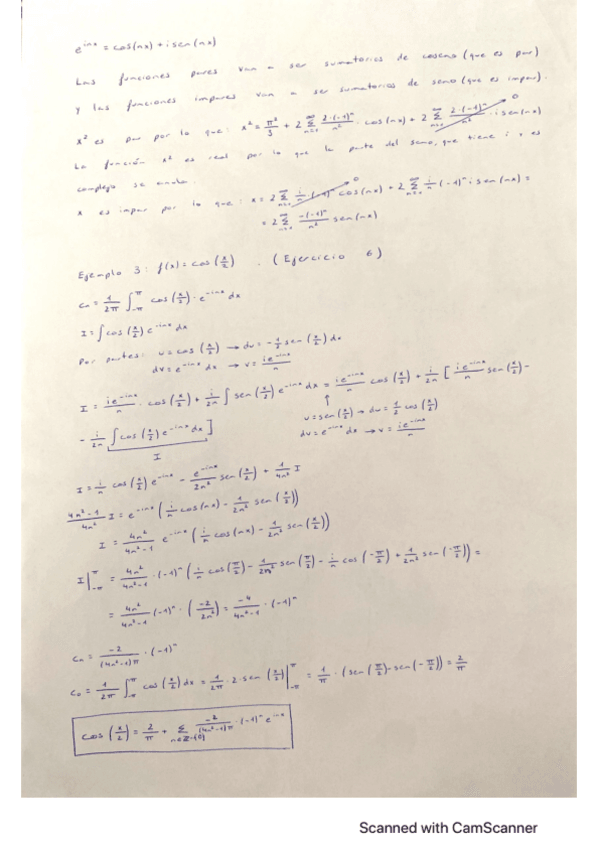 e^{inx} = cos(nx) + i sen(nx)
Las funciones pares van a ser sumatorios de coseno (que es par)
y las funciones impares van a ser sumatorios de seno (que es impar).
x² es par por lo que: x² = π²/3 + 2 ∑_{n=1}^∞ 2·(-1)^n/n² · cos(nx) + 2 ∑_{n=1}^∞ 2·(-1)^n/n² · i sen(nx) → 0
La función x² es real por lo que la parte del seno, que tiene i y es
complejo se anula.
x es impar por lo que: x = 2 ∑_{n=1}^∞ i/n (-1)^n cos(nx) → 0 + 2 ∑_{n=1}^∞ i/n (-1)^n i sen(nx) =
= 2 ∑_{n=1}^∞ -(-1)^n/n² sen(nx)
Ejemplo 3: f(x) = cos(x/2). (Ejercicio 6)
c_n = 1/2π ∫_{-π}^{π} cos(x/2) · e^{-inx} dx
I = ∫ cos(x/2) e^{-inx} dx
Por partes: u = cos(x/2) → du = -1/2 sen(x/2) dx
dv = e^{-inx} dx → v = ie^{-inx}/n
I = ie^{-inx}/n · cos(x/2) + i/2n ∫ sen(x/2) e^{-inx} dx = ie^{-inx}/n cos(x/2) + i/2n [ ie^{-inx}/n sen(x/2) -
↑
u = sen(x/2) → du = 1/2 cos(x/2)
- i/2n ∫ cos(x/2) e^{-inx} dx ]
dv = e^{-inx} dx → v = ie^{-inx}/n
I
I = i/n cos(x/2) e^{-inx} - e^{-inx}/2n² sen(x/2) + 1/4n² I
4n²-1/4n² I = e^{-inx} ( i/n cos(nx) - 1/2n² sen(x/2) )
I = 4n²/4n²-1 e^{-inx} ( i/n cos(nx) - 1/2n² sen(x/2) )
I |_{-π}^{π} = 4n²/4n²-1 · (-1)^n ( i/n cos(π/2) - 1/2n² sen(π/2) - i/n cos(-π/2) + 1/2n² sen(-π/2) ) =
= 4n²/4n²-1 (-1)^n · ( -2/2n² ) = -4/4n²-1 · (-1)^n
c_n = -2/(4n²-1)π · (-1)^n
c_0 = 1/2π ∫_{-π}^{π} cos(x/2) dx = 1/2π · 2 · sen(x/2) |_{-π}^{π} = 1/π · (sen(π/2) - sen(-π/2)) = 2/π
cos(x/2) = 2/π + ∑_{n∈Z-{0}} -2/(4n²-1)π · (-1)^n e^{inx}
Scanned with CamScanner